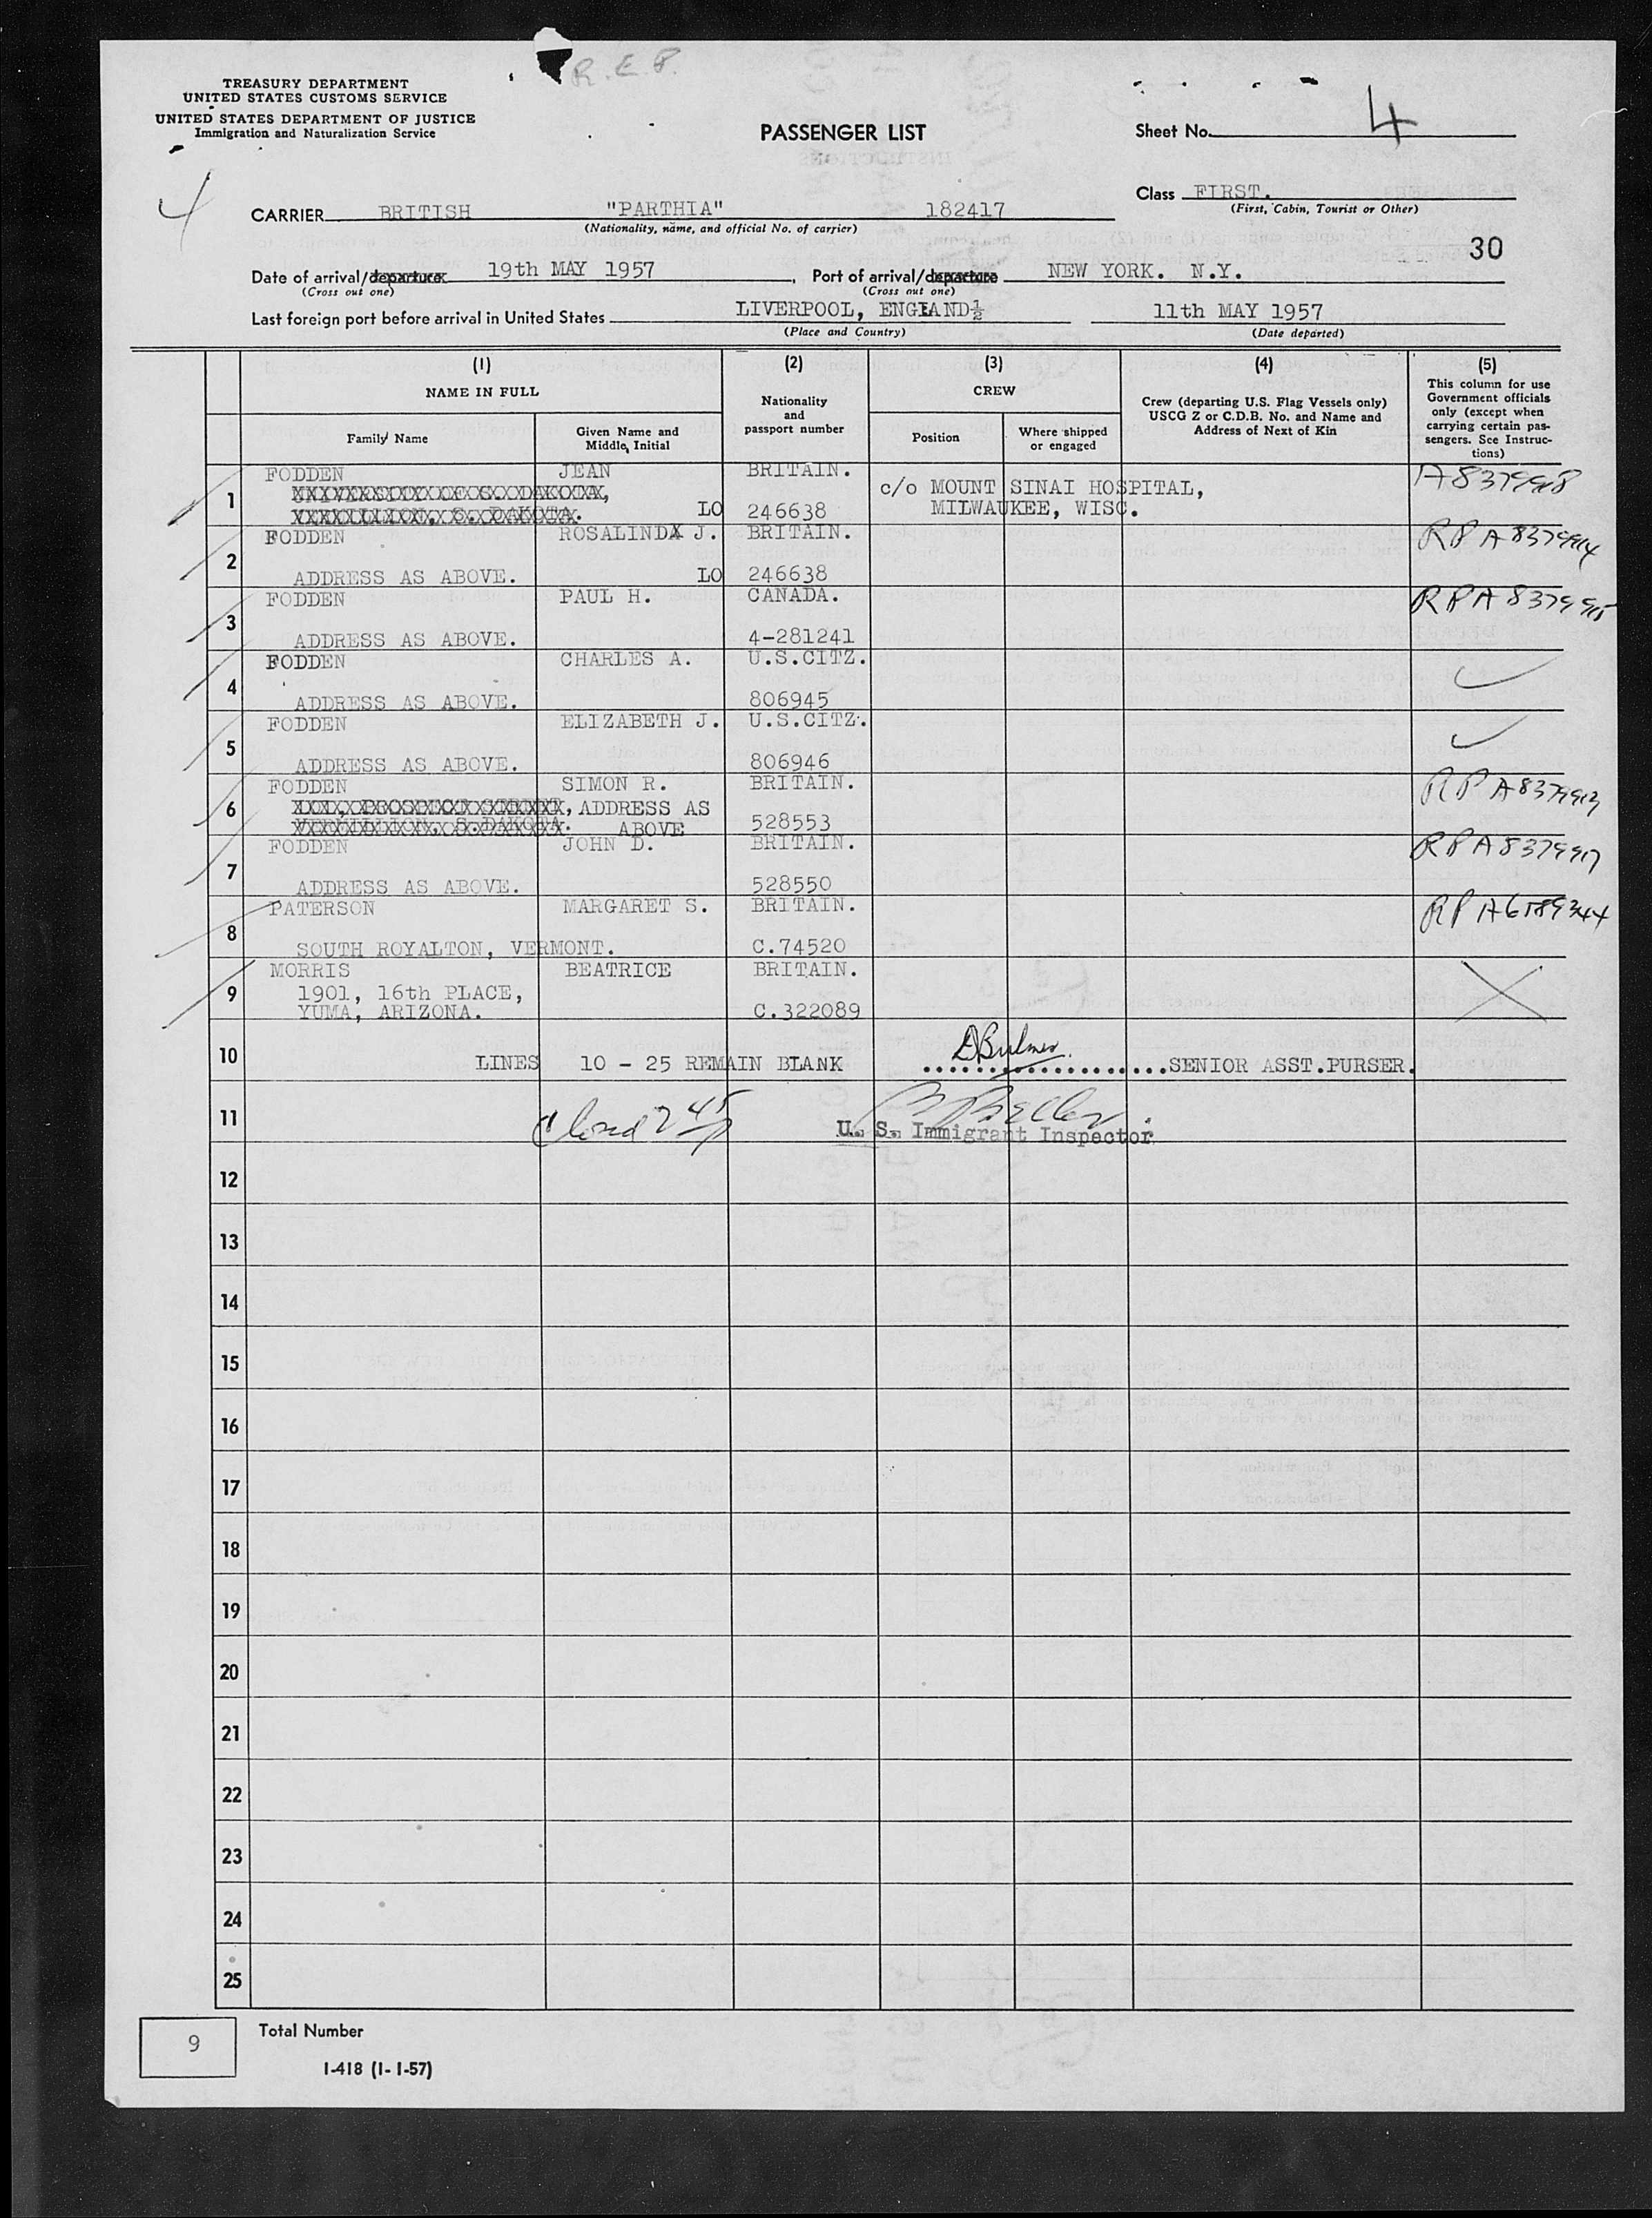 R.E.P.
TREASURY DEPARTMENT
UNITED STATES CUSTOMS SERVICE
UNITED STATES DEPARTMENT OF JUSTICE
Immigration and Naturalization Service
PASSENGER LIST
Sheet No. 4
4
Class FIRST.
(First, Cabin, Tourist or Other)
CARRIER BRITISH "PARTHIA" 182417
(Nationality, name, and official No. of carrier)
30
Date of arrival/departure 19th MAY 1957, Port of arrival/departure NEW YORK. N.Y.
(Cross out one) (Cross out one)
Last foreign port before arrival in United States LIVERPOOL, ENGLAND½ 11th MAY 1957
(Place and Country) (Date departed)
(1) (2) (3) (4) (5)
NAME IN FULL
Family Name
Given Name and Middle Initial
Nationality and passport number
CREW
Position
Where shipped or engaged
Crew (departing U.S. Flag Vessels only)
USCG Z or C.D.B. No. and Name and
Address of Next of Kin
This column for use
Government officials
only (except when
carrying certain pas-
sengers. See Instruc-
tions)
1 FODDEN JEAN BRITAIN.
c/o MOUNT SINAI HOSPITAL,
LO 246638 MILWAUKEE, WISC.
2 FODDEN ROSALIND J. BRITAIN.
ADDRESS AS ABOVE. LO 246638
3 FODDEN PAUL H. CANADA.
ADDRESS AS ABOVE. 4-281241
4 FODDEN CHARLES A. U.S.CITZ.
ADDRESS AS ABOVE. 806945
5 FODDEN ELIZABETH J. U.S.CITZ.
ADDRESS AS ABOVE. 806946
6 FODDEN SIMON R. BRITAIN.
ADDRESS AS
ABOVE 528553
7 FODDEN JOHN D. BRITAIN.
ADDRESS AS ABOVE. 528550
8 PATERSON MARGARET S. BRITAIN.
SOUTH ROYALTON, VERMONT. C.74520
9 MORRIS BEATRICE BRITAIN.
1901, 16th PLACE,
YUMA, ARIZONA. C.322089
10 LINES 10 - 25 REMAIN BLANK DBulmer. SENIOR ASST.PURSER.
11 Closed 2 45
U. S. Immigrant Inspector
12
13
14
15
16
17
18
19
20
21
22
23
24
25
9 Total Number
I-418 (1-1-57)